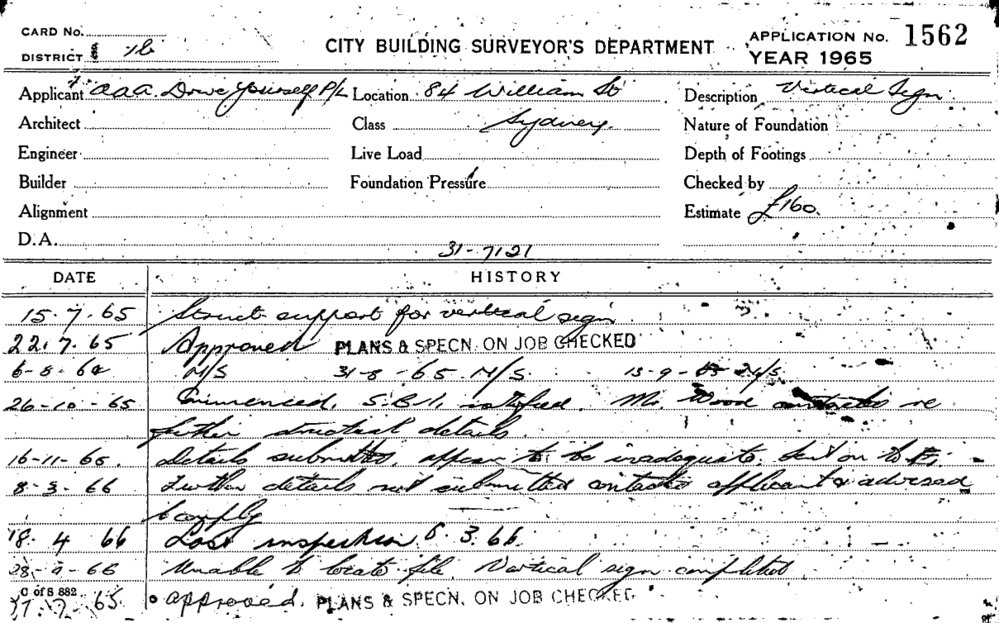 CARD No.
DISTRICT 1b
CITY BUILDING SURVEYOR'S DEPARTMENT
APPLICATION No. 1562
YEAR 1965
Applicant aaa. Drive Yourself P/L Location 84 William St Description Vertical Sign
Architect Class Sydney. Nature of Foundation
Engineer Live Load Depth of Footings
Builder Foundation Pressure Checked by
Alignment Estimate £160.
D.A. 31-7121
DATE HISTORY
15-7-65 Struct support for vertical sign
22.7.65 Approved PLANS & SPECN. ON JOB CHECKED
6-8-64 N/S 31-8-65 N/S. 13-9-65 N/S.
26-10-65 Commenced, satisfied. Mr. Wood re
further structural details.
16-11-65. Details submitted, appear to be inadequate. sent on to
8-3-66 Further details not submitted applicant & advised
to comply
18.4 66 Last inspection 8.3.66.
28-9-66 Unable to locate file, Vertical sign completed
C of S 882
65 approved. PLANS & SPECN. ON JOB CHECKED